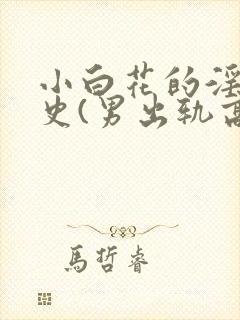 小白花的淫
史(男出轨高
馬哲睿